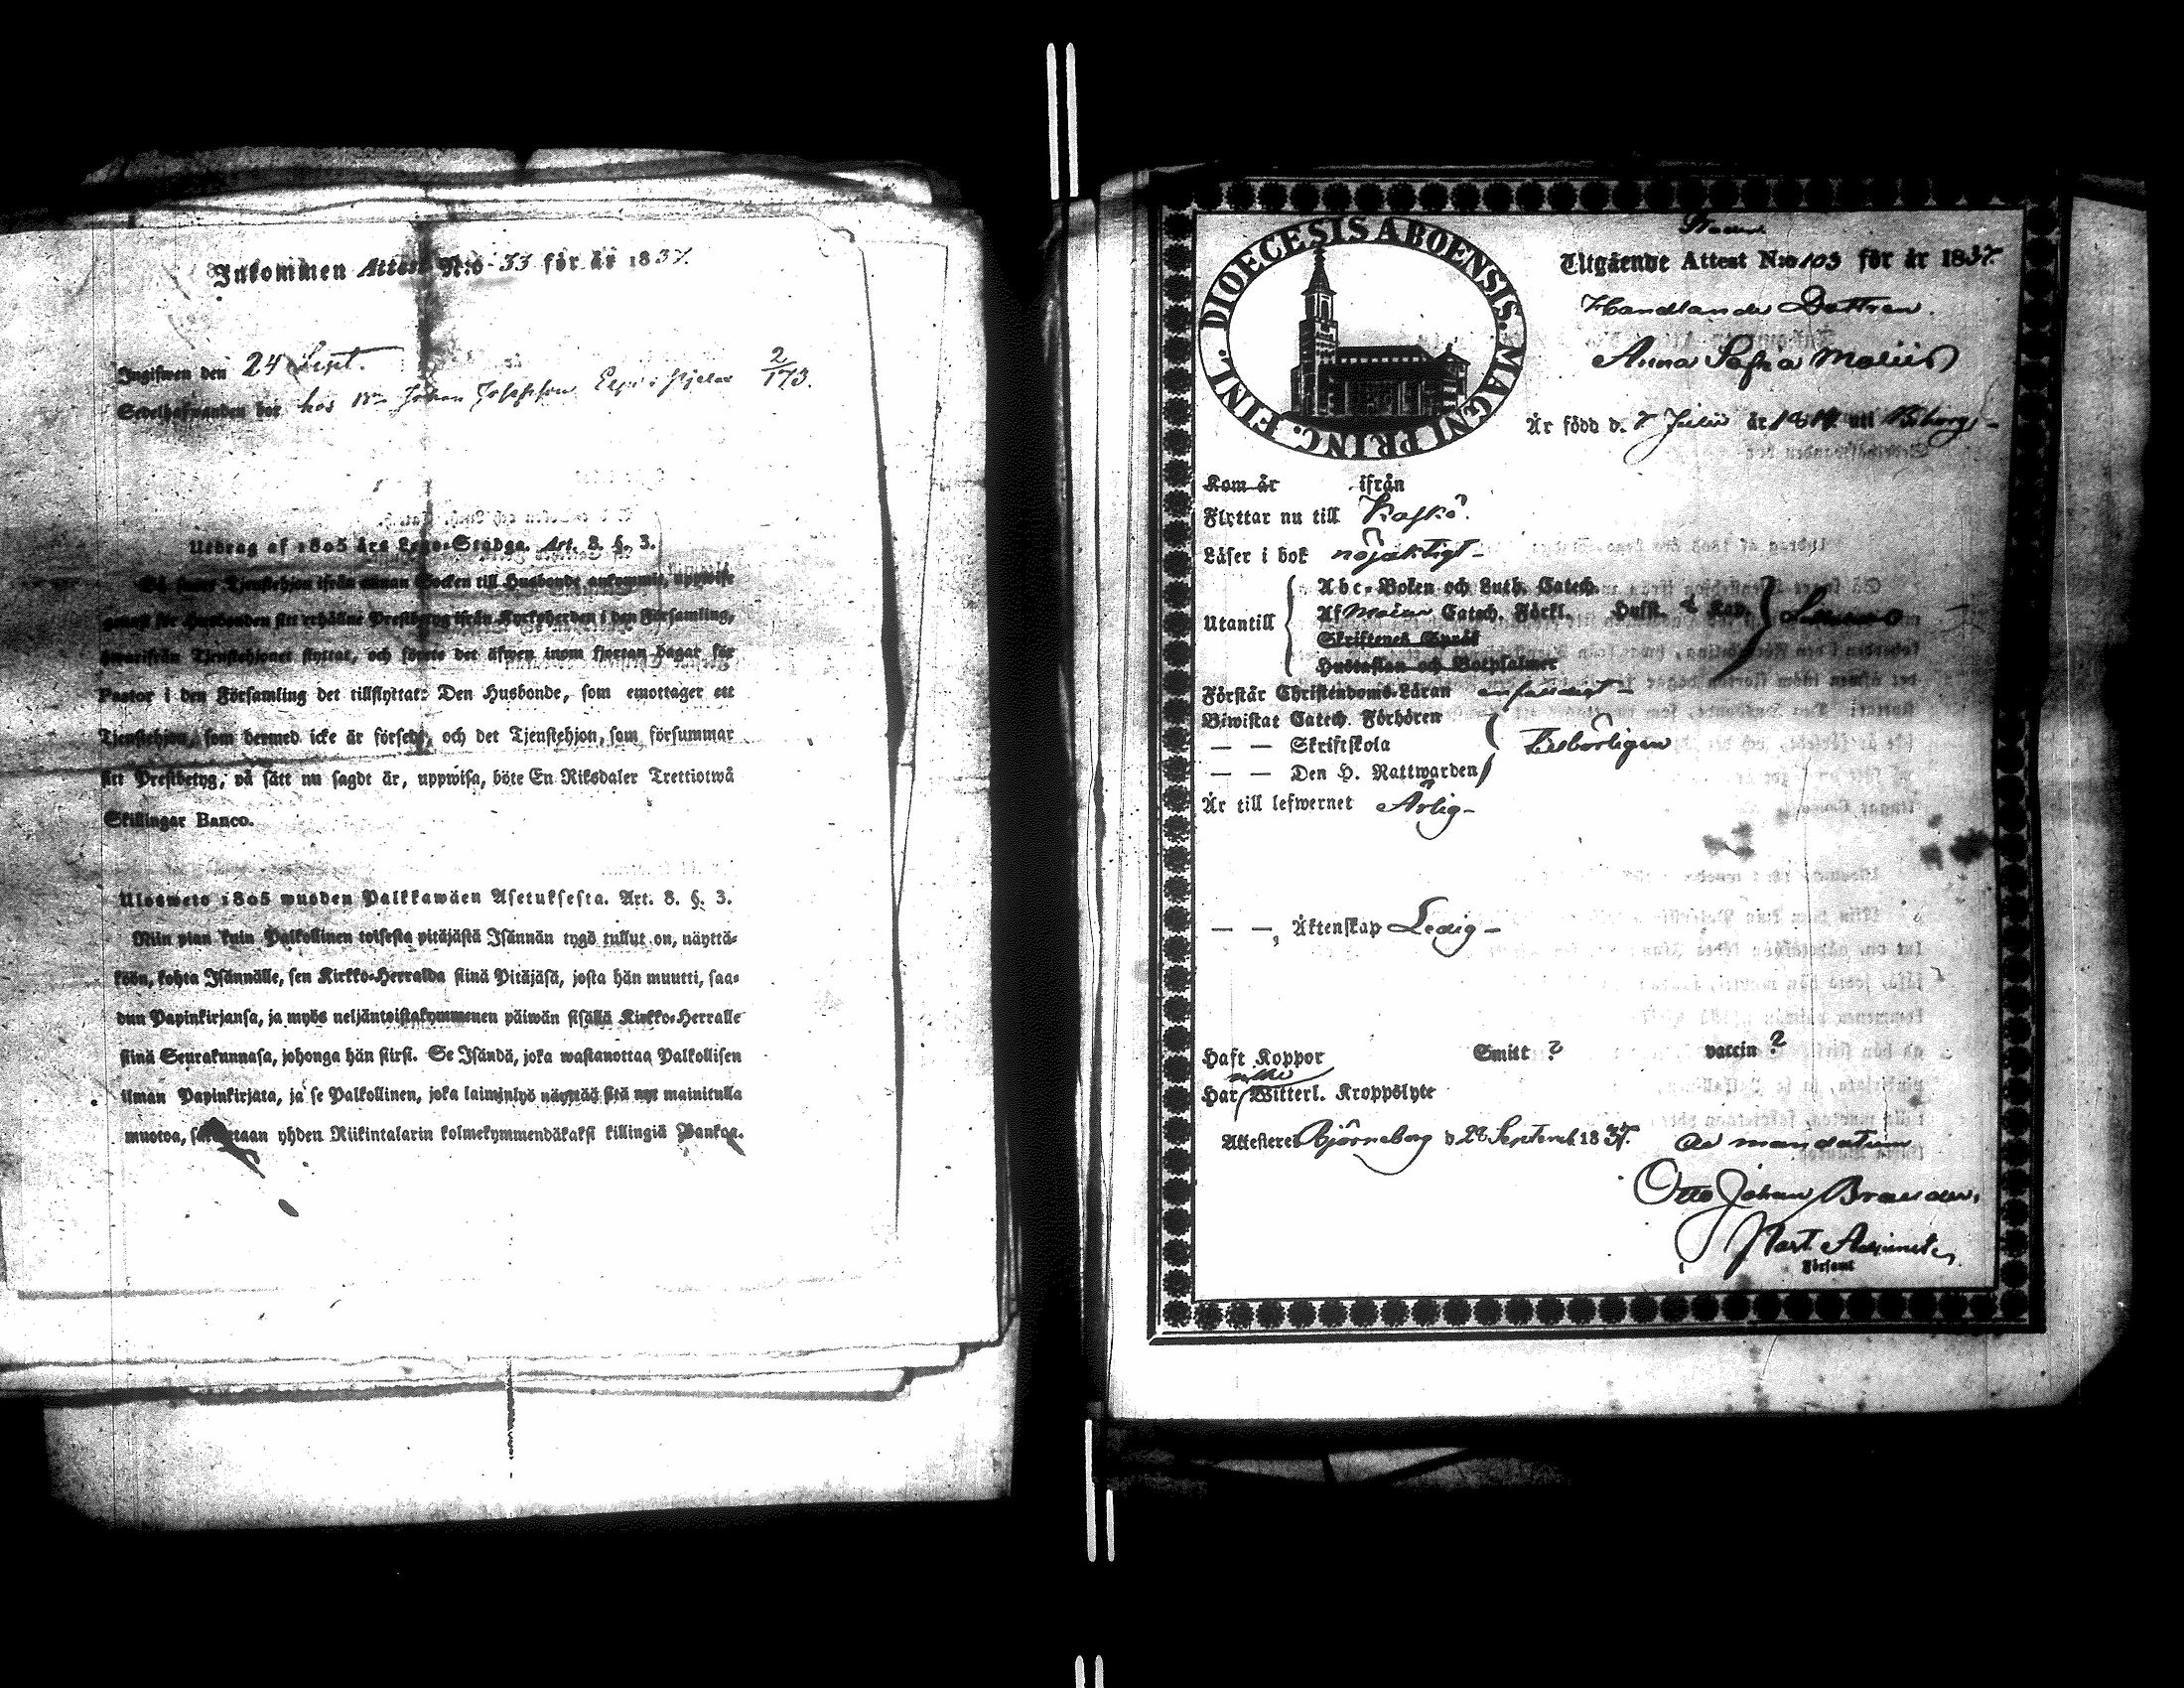 Inkommen Attest N:o 33 för år 1837.
Ingifwen den 24 Sept.
Sedelhafwanden bor hos Johan Josephson 2/173.
Utdrag af 1805 års Lego-Stadga. Art. 8. §. 3.
Så snart Tjenstehjon ifrån annan Socken till Husbonde ankommit, uppwise
genast för Husbonden sitt erhållne Prestbetyg ifrån Kyrkoherden i den Församling,
hwarifrån Tjenstehjonet flyttat, och förete det äfwen inom fjorton dagar för
Pastor i den Församling det tillflyttat: Den Husbonde, som emottager ett
Tjenstehjon, som dermed icke är försedt, och det Tjenstehjon, som försummar
sitt Prestbetyg, på sätt nu sagdt är, uppwisa, böte En Riksdaler Trettiotwå
Skillingar Banco.
Ulosweto 1805 wuoden Palkkawäen Asetuksesta. Art. 8. §. 3.
Niin pian kuin Palkollinen toisesta pitäjästä Isännän tygö tullut on, näyttä-
köön, kohta Isännälle, sen Kirkko-Herralda siinä Pitäjäsä, josta hän muutti, saa-
dun Papinkirjansa, ja myös neljäntoistakymmenen päiwän sisällä Kirkko-Herralle
siinä Seurakunnasa, johonga hän siirsi. Se Isändä, joka wastanottaa Palkollisen
ilman Papinkirjata, ja se Palkollinen, joka laiminlyö näyttää sitä nyt mainitulla
muotoa, sakotetaan yhden Riikintalarin kolmekymmendäkaksi killingiä Bankoa.
DIOECESIS ABOENSIS. MAGNI PRINC. FINL.
Utgående Attest N:o 103 för år 1837.
Handlande Dottren
Anna Sofia Moliis
Är född d. 7 Julii år 1819 uti Wiborg
Kom år ifrån
Flyttar nu till Kaskö.
Läser i bok nöjaktigt
Utantill
Abc-Boken och Luth. Catech.
Af Catech. Förkl. Husst. & Kap.
Skriftenes Språk
Hustaflan och Botpsalmer
Förstår Christendoms-Läran enfaldigt
Biwistat Catech. Förhören
— — Skriftskola
Tillbörligen
— — Den H. Nattwarden
Är till lefwernet Ärlig
— —, Äktenskap Ledig
Haft Koppor Smitt ? vaccin ?
Har Witterl. Kroppslyte
Attesterer Björneborg d 22 Septemb 1837. ad mandatum
Otto Johan
Past Adjunct
i Församl